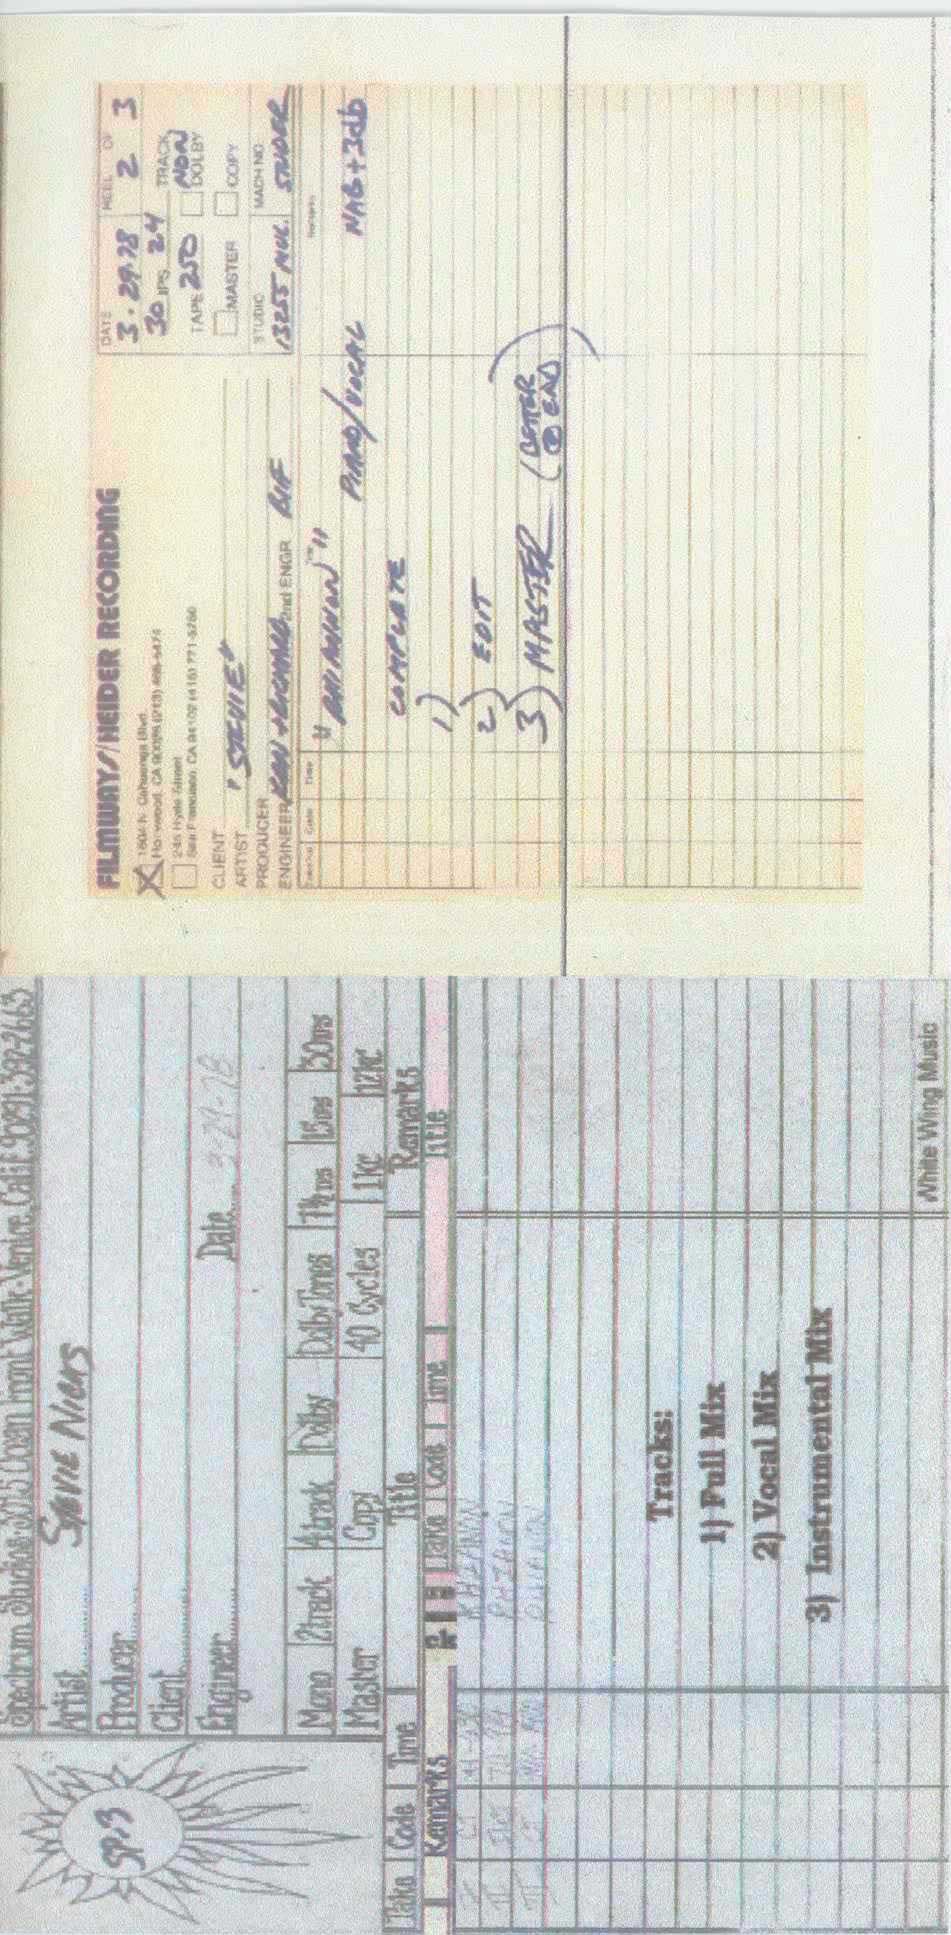 FILMWAYS/HEIDER RECORDING
X 1604 N. Cahuenga Blvd.
Hollywood, CA 90028 (213) 466-5474
245 Hyde Street
San Francisco, CA 94102 (415) 771-5780
DATE
3·29·78
REEL OF
2 3
30 IPS 24 TRACK
TAPE 250 NON DOLBY
MASTER COPY
CLIENT
ARTIST "STEVIE"
PRODUCER
STUDIO MACH NO
STUDER
ENGINEER 2nd ENGR
Code Time Title Remarks
PIANO/VOCAL NAB+3db
COMPLETE
1)
2) EDIT
3) MASTER (BETTER
@ END)
Spectrum Studios
Ocean Front Walk-Venice, Calif. 90291-392-2663
SP.3
Artist STEVIE NICKS
Producer
Client
Engineer Date 3-29-78
Mono 2track 4track Dolby DolbyTones 7½ips 15ips 30ips
Master Copy 40 Cycles 1KC 12KC
Take Code Time Title Remarks
Remarks Take Code Time Title
I RHIANON
II RHIANON
III RHIANON
Tracks:
1) Full Mix
2) Vocal Mix
3) Instrumental Mix
White Wing Music